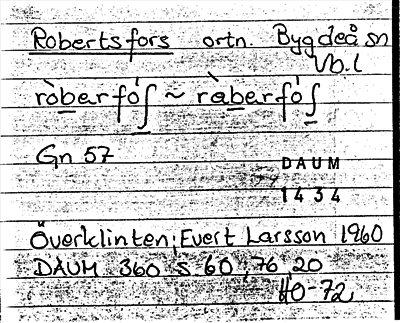 Robertsfors ortn. Bygdeå sn
Vb.l
ròberfóʃ ~ ràberfóʃ
Gn 57
DAUM
1434
Överklinten; Evert Larsson 1960
DAUM 360 S. 60, 76, 20
HO-72